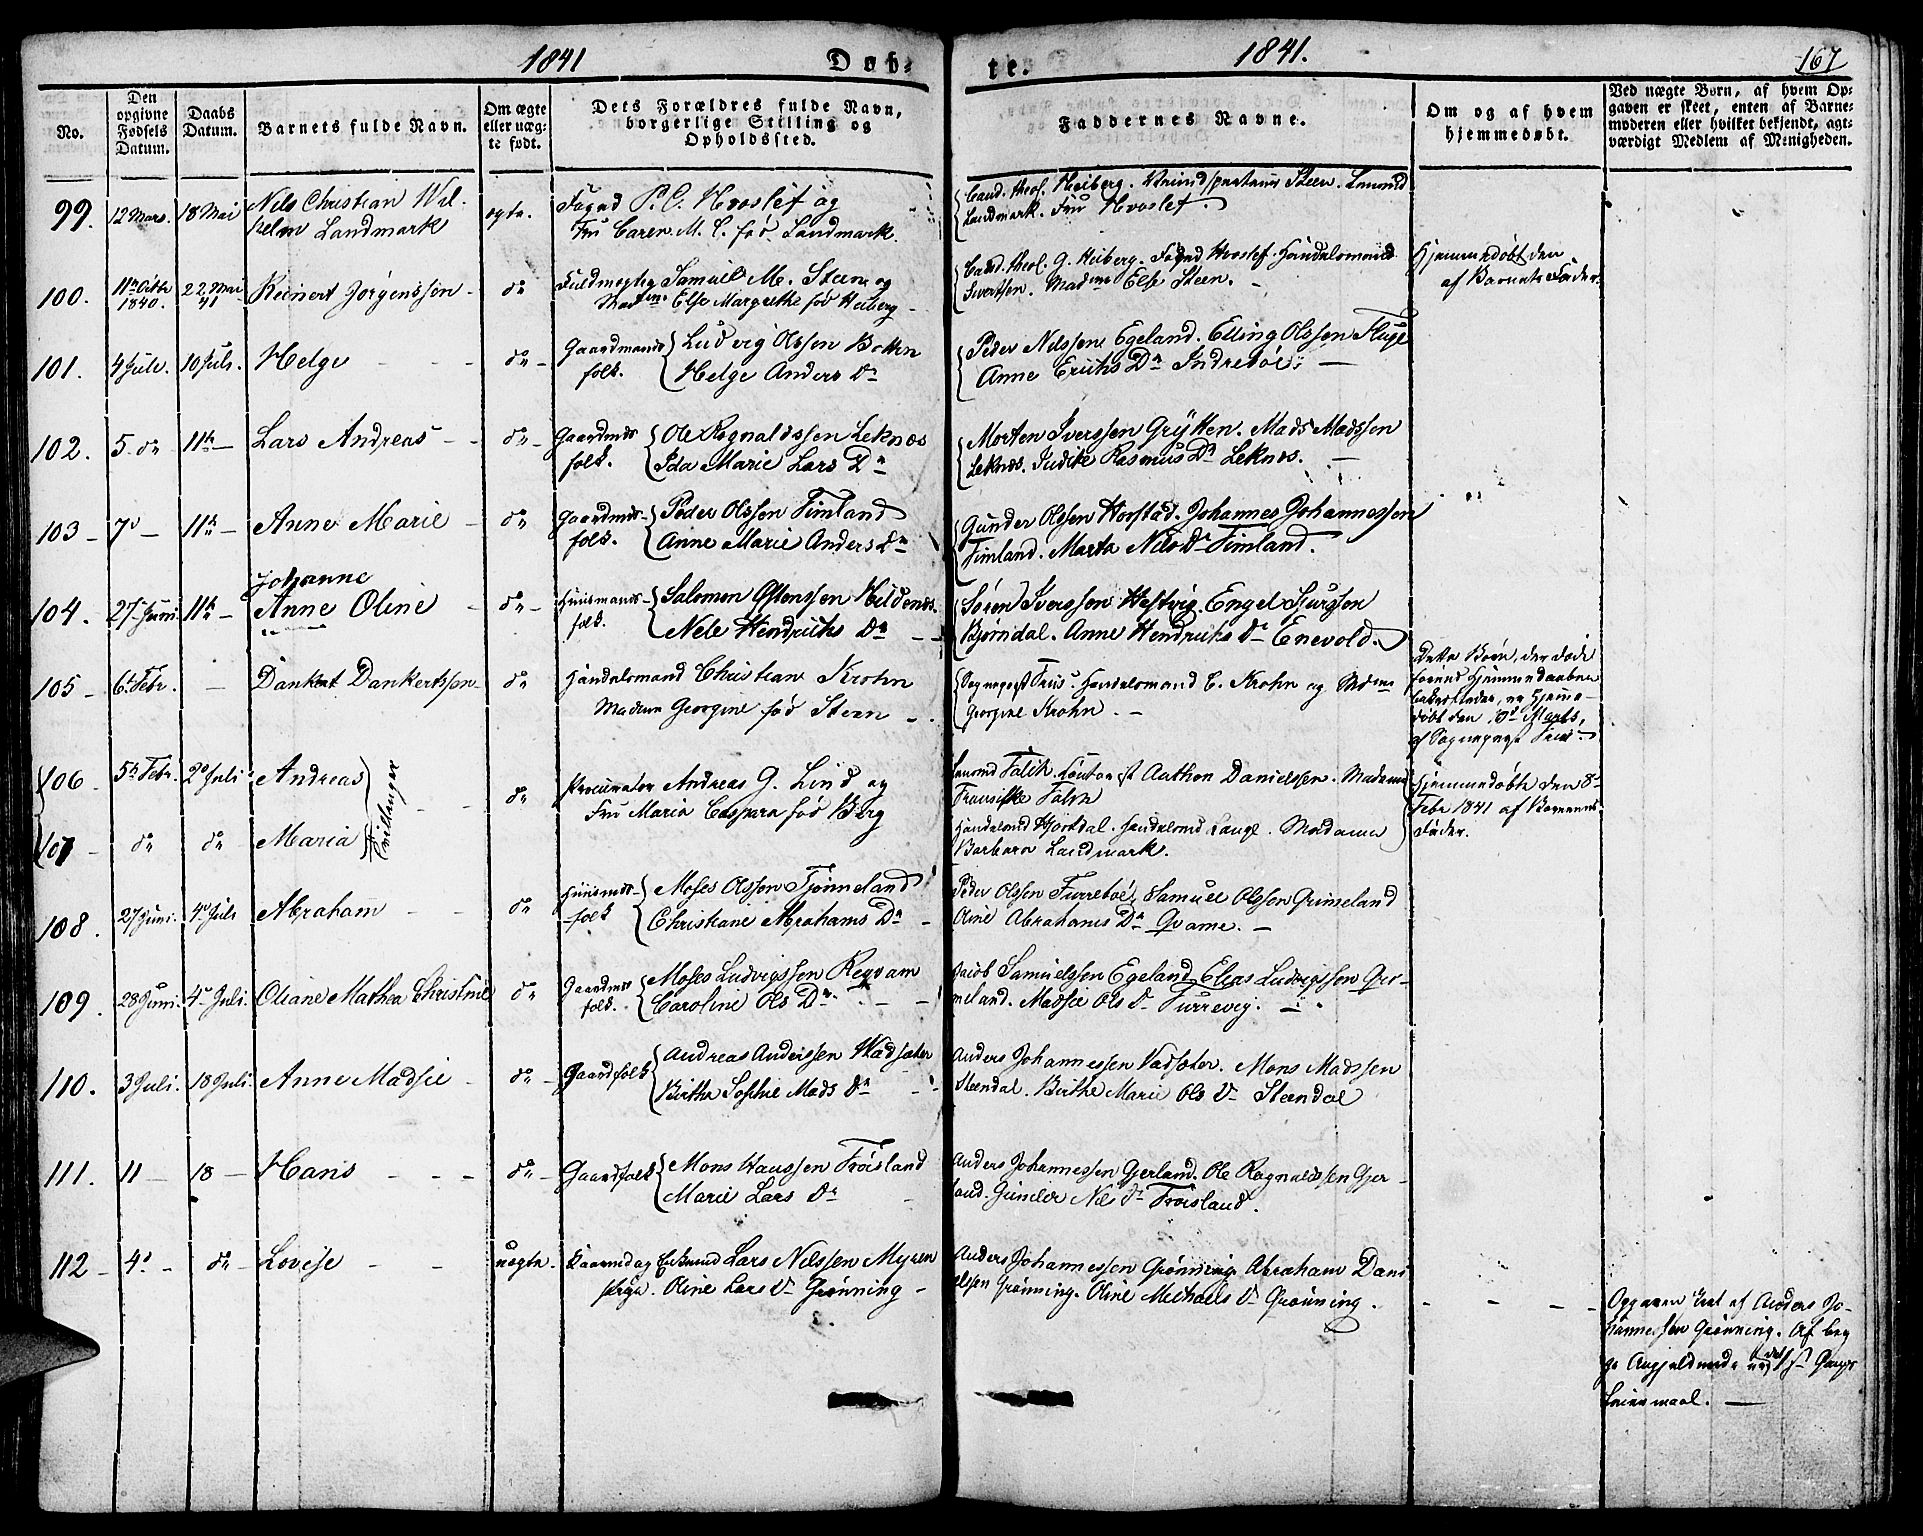 1841
Døb-
te.
1841.
167
No.
Den opgivne Fødsels Datum.
Daabs Datum.
Barnets fulde Navn.
Om ægte eller uæg- te født.
Dets Forældres fulde Navn, borgerlige Stilling og Opholdssted.
Faddernes Navne.
Om og af hvem hjemmedøbt.
Ved uægte Børn, af hvem Op- gaven er skeet, enten af Barne- moderen eller hvilket bekjendt, agt- værdigt Medlem af Menigheden.
99. 12 Mars. 18 Mai Nils Christian Wil-
helm Landmark
egte.
Foged P. C. Hvoslef og
Fru Caren M. C. fød Landmark.
Cand. theol. Heiberg. Steen.
Landmark. Fru Hvoslef.
100. 11te Octbr 1840. 22 Mai 41 Reinert Jørgenssøn do
Fuldmegtig Samuel M. Steen og
Madme. Else Margrethe fød Heiberg
Cand. theol. G. Heiberg. Foged Hvoslef. Handelsmand
Sivertsen. Madme Else Steen.
Hjemmedøbt den
af Barnets Fader.
101. 4 Juli. 10 Juli. Helge do
Gaardmands folk. Ludvig Olssen Botten
Helge Anders Dr
Peder Nilssen Egeland. Elling Olssen Fluge
Anne Erichs Dr Indrebøe
102. 5 do 11te Lars Andreas do
Gaardmds folk. Ole Ragnaldssen Leknæs
Ida Marie Lars Dr
Morten Iverssen Grytten. Mads Madssen
Leknes. Rasmus Dr Leknes.
103 7d 11te Anne Marie do
Gaardmds folk. Peder Olssen Timland
Anne Marie Anders Dr
Gunder Olssen Horstad. Johannes Johannessen
Timland. Marta Nils Dr Timland.
104. 27 Juni 11te
Johanne
Anne Oline do
Huusmands folk. Salomon Hildenes.
Nele Hendrichs Dr
Søren Iverssen Hestvig. Engel
Bjørndal. Anne Hendrichs Dr Enevold.
105 6te Febr. Dankert Dankertssen do
Handelsmand Christian Krohn
Madme Georgine fød Steen
Sognepræst Friis. Handelsmand C. Krohn og Madme
Georgine Krohn.
Dette Barn, der døde
Hjemmedøbt den Marts,
af Sognepræst Friis
106 5te Febr. 2d Juli Andreas
107 do do Maria
Tvillinger do
Procurator Andreas G. Lind og
Fru Maria Caspara fød Berg
Falch. Aathon Danielssen. Madame
Fransiske Falch
Handelsmd Hjortdal. Handelsmd Lange. Madame
Barbara Landmark.
Hjemmedøbte den 8de
Febr 1841 af Børnenes
Fader.
108. 27 Juni. 4d Juli Abraham do
Huusmds folk Moses Olssen Tjønneland
Christiane Abrahams Dr
Peder Olssen Furrebøe, Samuel Olssen Grimeland
Oline Abrahams Dr Qvame.
109. 28 Juni. 4d Juli. Oliane Mathea Christine do
Gaardmds folk. Moses Ludvigssen Reqvam
Caroline Ols Dr
Jacob Samuelssen Egeland Elias Ludvigssen Gri-
meland. Madsie Ols Dr Furrevig.
110. 3 Juli. 18 Juli. Anne Madsie do
Gaardfolk Andreas Anderssen Wadsæter
Birthe Sophie Mads Dr
Anders Johannessen Vadsæter. Mons Madssen
Steendal. Birthe Marie Ols Dr Steendal
111. 11 18 Hans do
Gaardfolk Mons Hanssen Frøisland
Marie Lars Dr
Anders Johannessen Gjerland. Ole Ragnaldssen Gjer-
land. Nils Dr Frøisland.
112 4d do Lovise uægte.
Lars Nilssen Myren
Pige. Oline Lars Dr Grønning
Anders Johannessen Grønning Abraham Dani-
elssen Grønning. Oline Michaels Dr Grønning.
Opgaven skeet af Anders Jo-
hannessen Grønning. Af beg-
ge
Leiermaal.